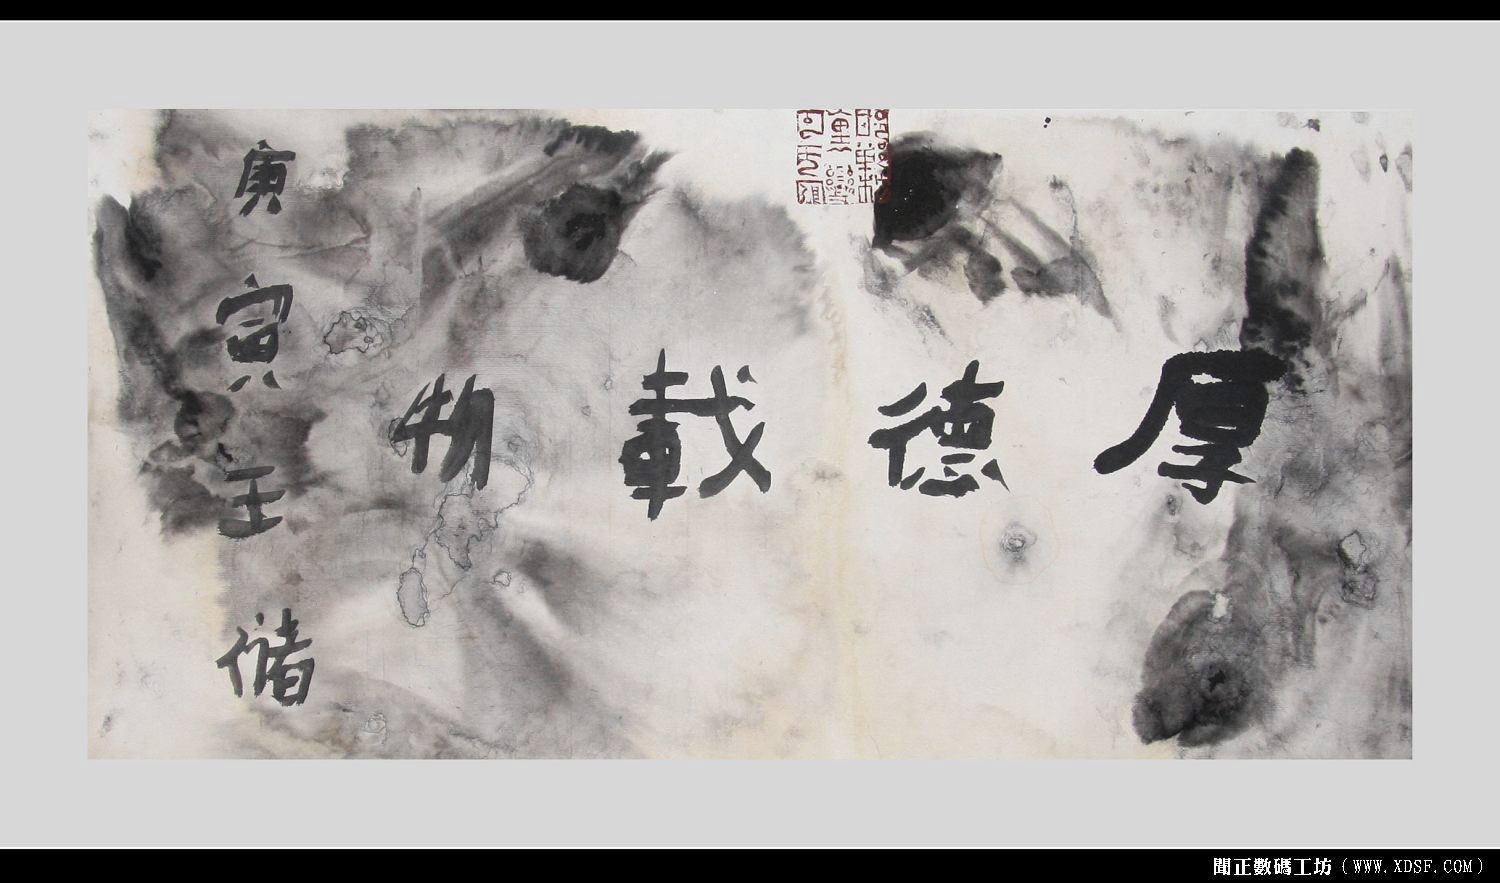 厚德載物
庚寅王储
聞正數碼工坊（WWW.XDSF.COM）